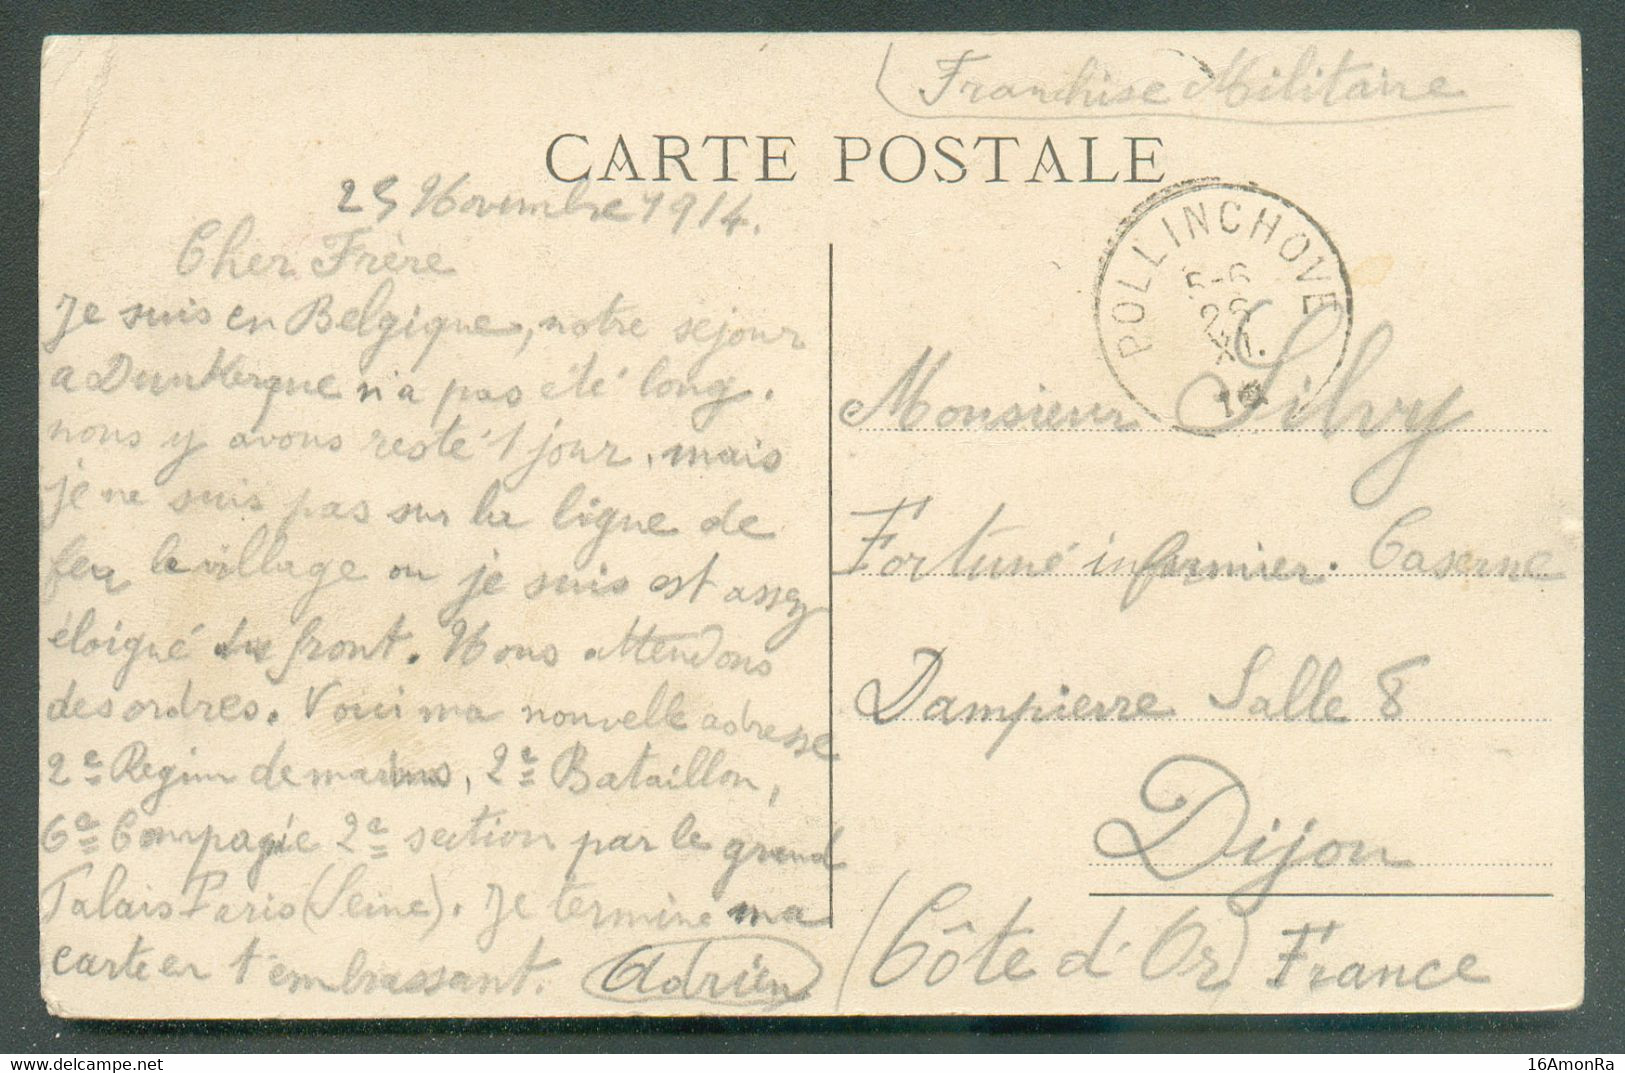 (Franchise Militaire
CARTE POSTALE
25 Novembre 1914.
Cher Frère
Je suis en Belgique, notre sejour
a Dunkerque n'a pas été long.
nous y avons resté 1 jour, mais
je ne suis pas sur la ligne de
feu le village ou je suis est assez
éloigné du front. Nous attendons
des ordres. Voici ma nouvelle adresse
2e Regim de marins, 2e Bataillon,
6e Compagie 2e section par le grand
Palais Paris (Seine). Je termine ma
carte en t'embrassant. Adrien
POLLINCHOVE
5-6
XI.
Monsieur Silvy
Fortuné infirmier. Caserne
Dampierre Salle 8
Dijon
(Côte d'Or) France
16AmonRa